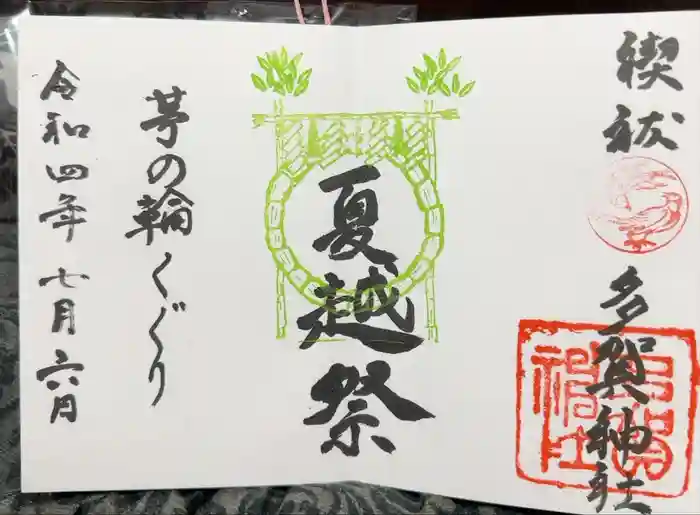 禊祓
多賀神社
夏越祭
茅の輪くぐり
令和四年七月六月
多賀神社